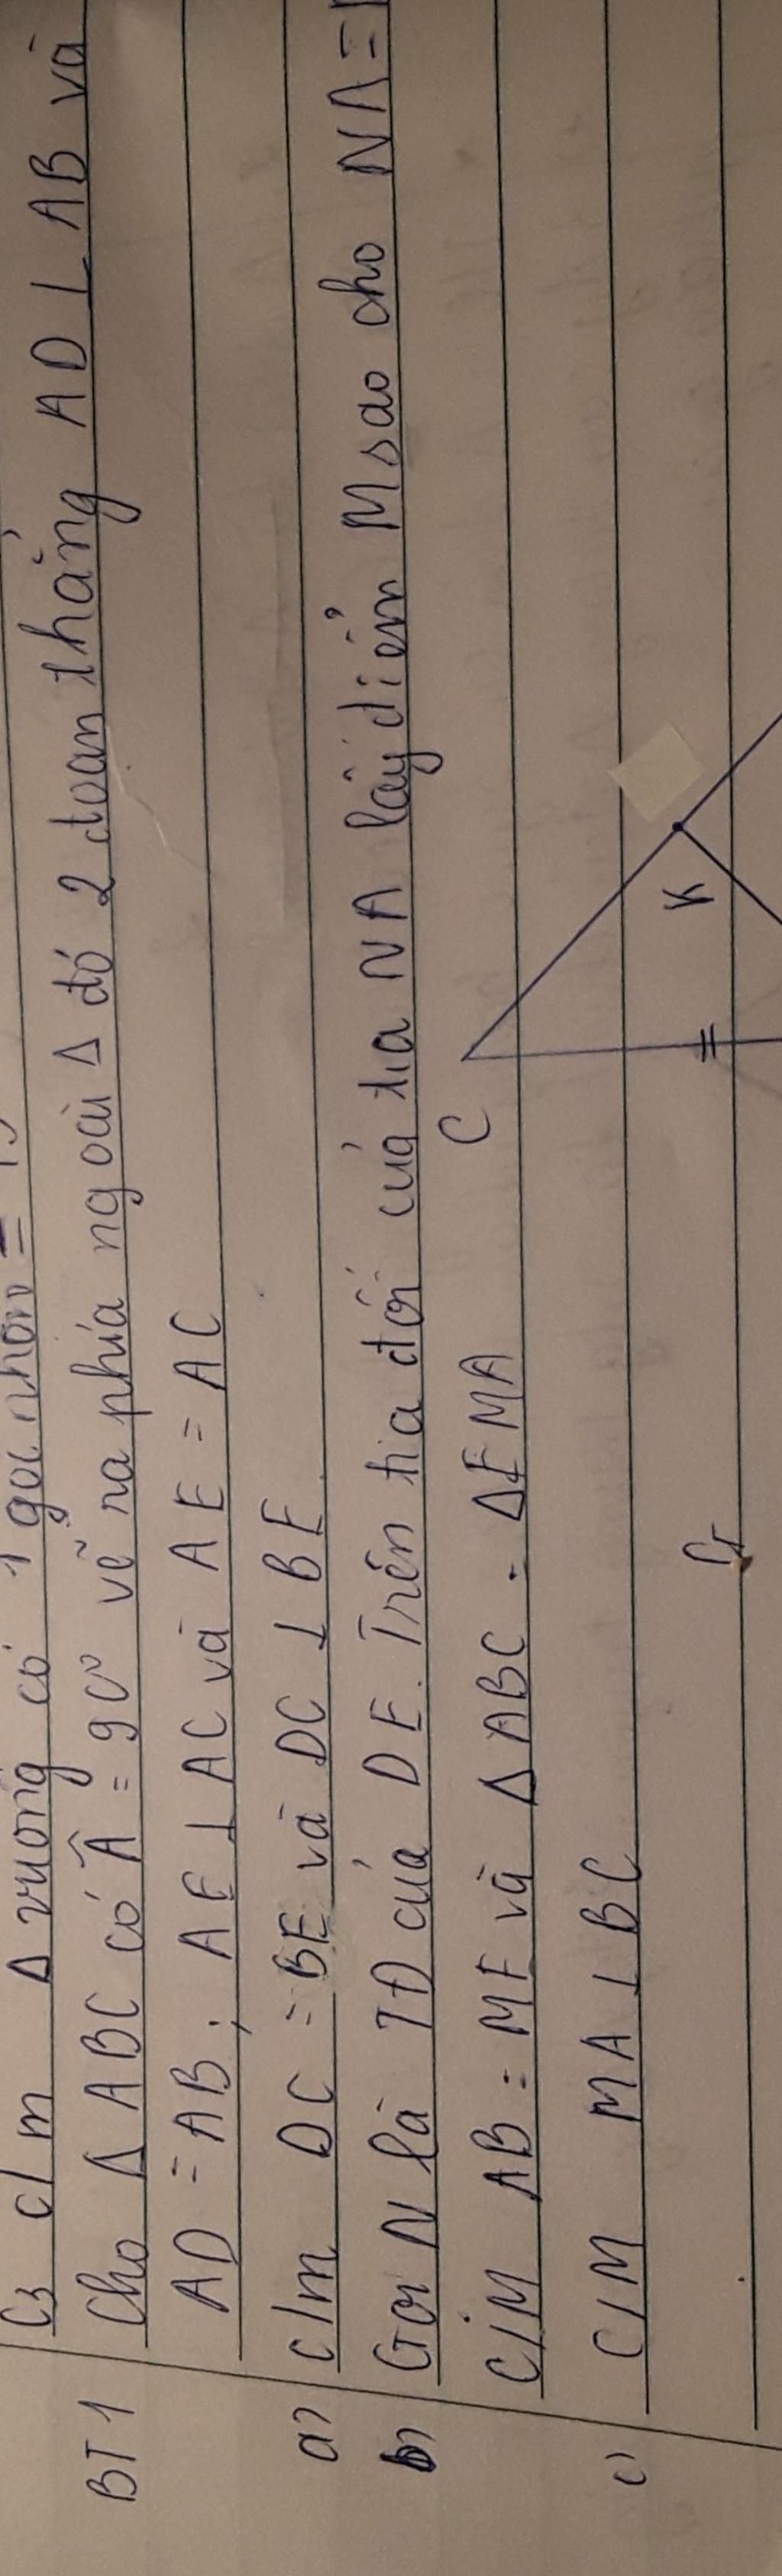 C3 c/m Δ vuông có 1 góc nhọn =
BT1 Cho Δ ABC có Â = 90° vẽ ra phía ngoài Δ đó 2 đoạn thẳng AD ⊥ AB và
AD = AB; AE ⊥ AC và AE = AC
a) c/m DC = BE và DC ⊥ BE
b) Gọi N là TĐ của DE. Trên tia đối của tia NA lấy điểm M sao cho NA =
C/M AB = ME và Δ ABC = ΔEMA
c) C/M MA ⊥ BC
C
K